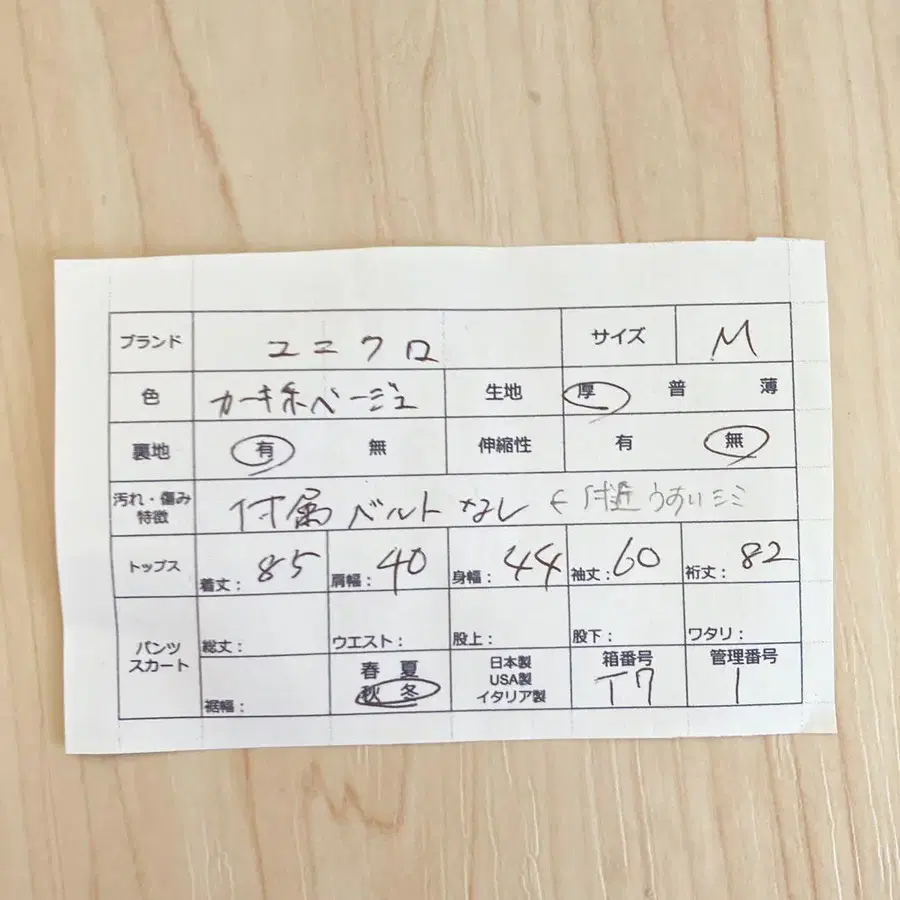 ブランド ユニクロ サイズ M
色 カーキ系ベージュ 生地 厚 普 薄
裏地 有 無 伸縮性 有 無
汚れ・傷み
特徴 付属ベルトなし ← 付近うすいシミ
トップス 着丈：85 肩幅：40 身幅：44 袖丈：60 裄丈：82
パンツ
スカート 総丈： ウエスト： 股上： 股下： ワタリ：
裾幅： 春 夏
秋 冬
日本製
USA製
イタリア製
箱番号
T7
管理番号
1